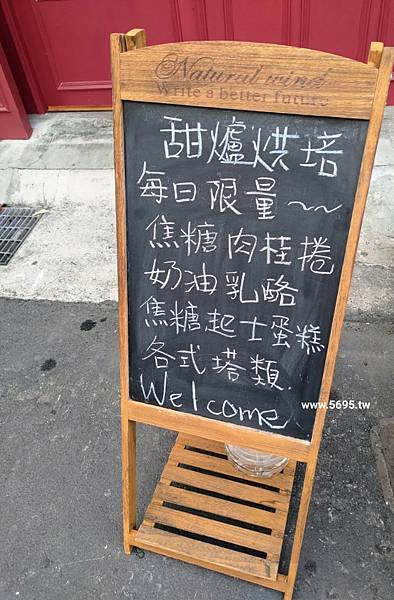 Natural wind
Write a better future
甜爐烘培
每日限量~~
焦糖肉桂捲
奶油乳酪
焦糖起士蛋糕
各式塔類.
Welcome.
www.5695.tw